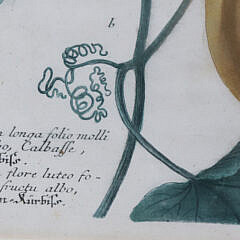 b
longa folio molli
bo, Calbasse,
bise.
flore luteo fo-
fructu albo,
n-Kürbise.